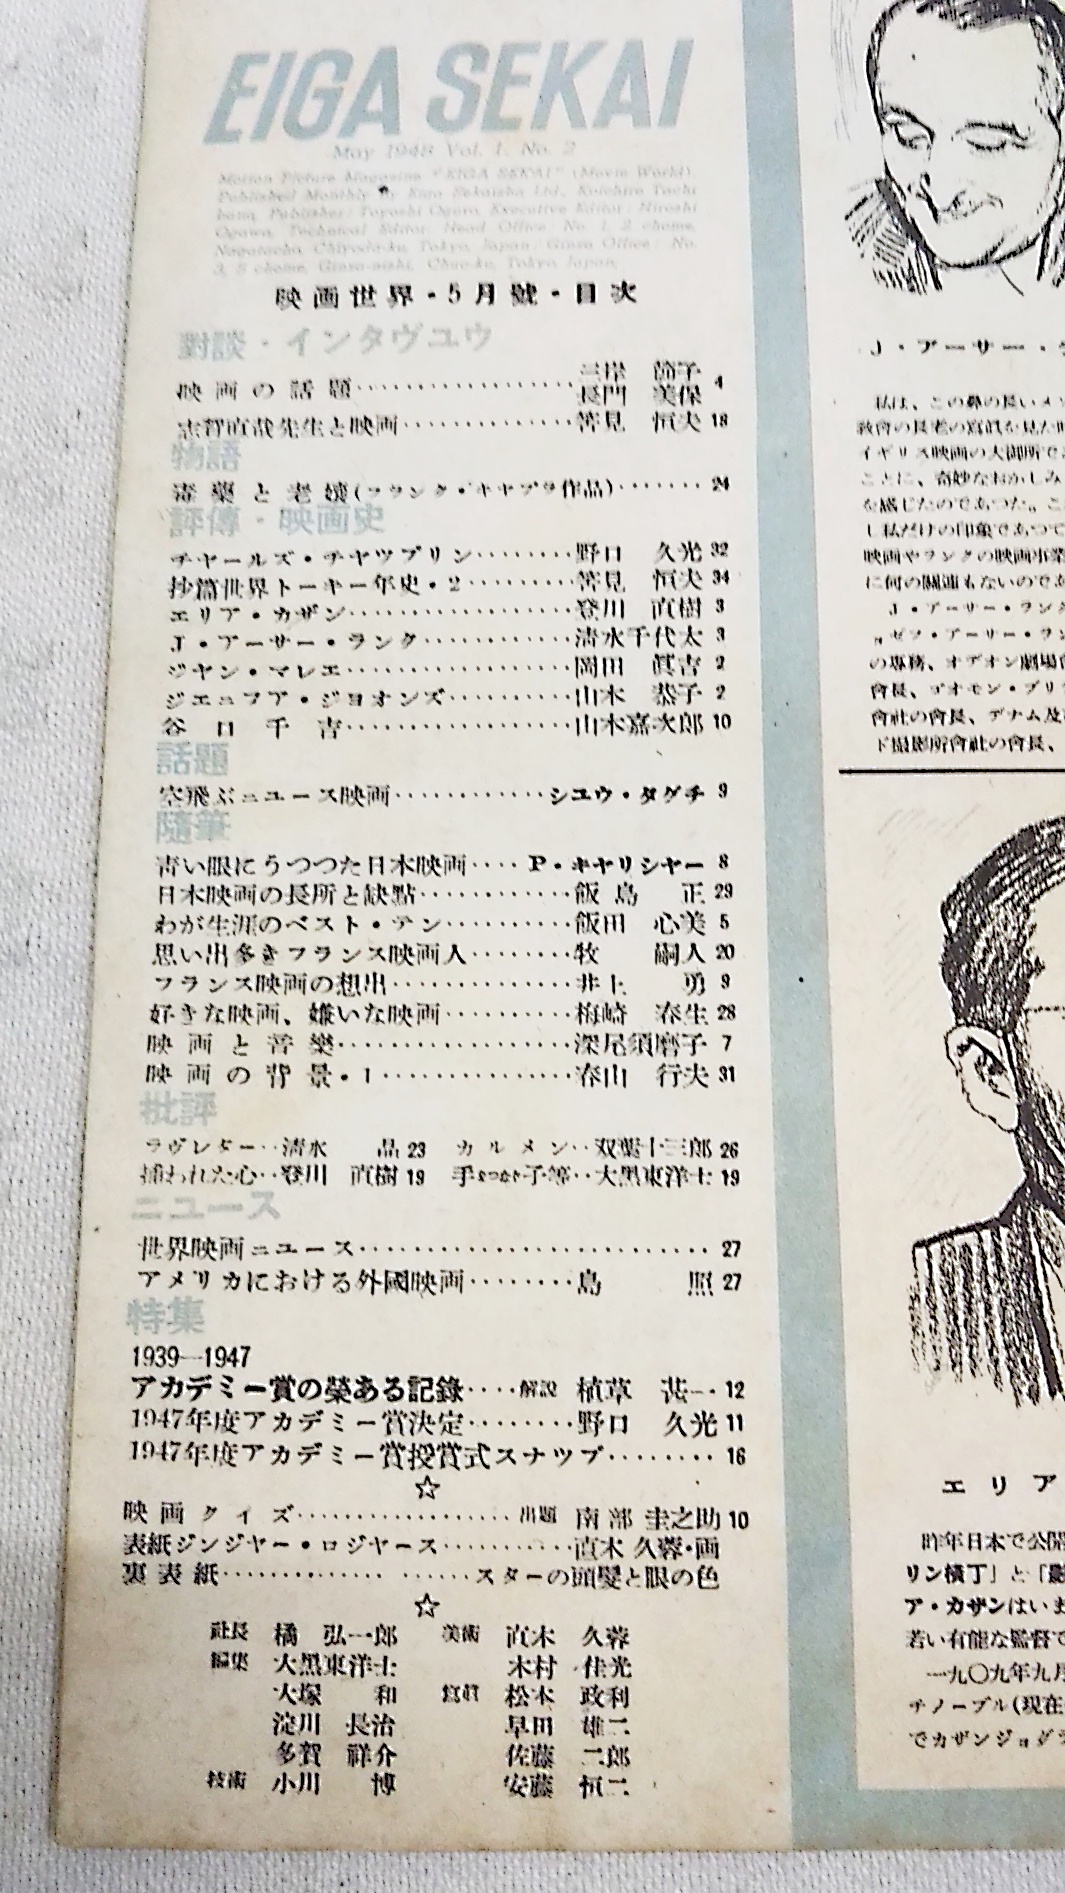 EIGA SEKAI
May 1948 Vol. 1. No. 2
Motion Picture Magazine "EIGA SEKAI" (Movie World).
Published Monthly by Eiga Sekaisha Ltd., Koichiro Tachi
bana, Publisher: Toyoshi Oguro, Executive Editor: Hiroshi
Ogawa, Technical Editor. Head Office: No. 1, 2 chome,
Nagatacho, Chiyoda-ku, Tokyo, Japan: Ginza Office: No.
3, 5 chome, Ginza-nishi, Chuo-ku, Tokyo, Japan.
映画世界・5月號・目次
對談・インタヴユウ
映画の話題 三岸 節子 長門 美保 4
志賀直哉先生と映画 筈見 恒夫 18
物語
毒藥と老嬢(フランク・キヤプラ作品) 24
評傳・映画史
チヤールズ・チヤツプリン 野口 久光 32
抄篇世界トーキー年史・2 筈見 恒夫 34
エリア・カザン 登川 直樹 3
J・アーサー・ランク 清水千代太 3
ジヤン・マレエ 岡田 眞吉 2
ジエニフア・ジヨオンズ 山本 恭子 2
谷口千吉 山本嘉次郎 10
話題
空飛ぶニユース映画 シユウ・タグチ 9
隨筆
青い眼にうつつた日本映画 P・キヤリシヤー 8
日本映画の長所と缺點 飯島 正 29
わが生涯のベスト・テン 飯田 心美 5
思い出多きフランス映画人 牧 嗣人 20
フランス映画の想出 井上 勇 9
好きな映画、嫌いな映画 梅崎 春生 28
映画と音樂 深尾須磨子 7
映画の背景・1 春山 行夫 31
批評
ラヴレター 清水 晶 23 カルメン 双葉十三郎 26
捕われた心 登川 直樹 19 手をつなぐ子等 大黒東洋士 19
ニュース
世界映画ニユース 27
アメリカにおける外國映画 島 照 27
特集
1939—1947
アカデミー賞の榮ある記錄 解説 植草 甚一 12
1947年度アカデミー賞決定 野口 久光 11
1947年度アカデミー賞授賞式スナツプ 16
☆
映画クイズ 出題 南部 圭之助 10
表紙ジンジヤー・ロジヤース 直木 久蓉・画
裏表紙 スターの頭髮と眼の色
☆
社長 橘 弘一郎 美術 直木 久蓉
編集 大黒東洋士 木村 佳光
大塚 和 寫眞 松本 政利
淀川 長治 早田 雄二
多賀 祥介 佐藤 二郎
技術 小川 博 安藤 恒二
J・アーサー・
私は、この鼻の長い
敎會の長老の寫眞を見た
イギリス映画の大御所で
ことに、奇妙なおかしみ
を感じたのであつた。こ
し私だけの印象であつて
映画やランクの映画事業
に何の關連もないのであ
J・アーサー・ランク
ゼフ・アーサー・ラン
の專務、オデオン劇場
會長、ゴオモン・ブリ
會社の會長、デナム及
ド撮影所會社の會長、
エリア
昨年日本で公開
リン横丁」と「
ア・カザンはいま
若い有能な監督で
一九〇九年九月
チノープル(現在
でカザンジョグラ